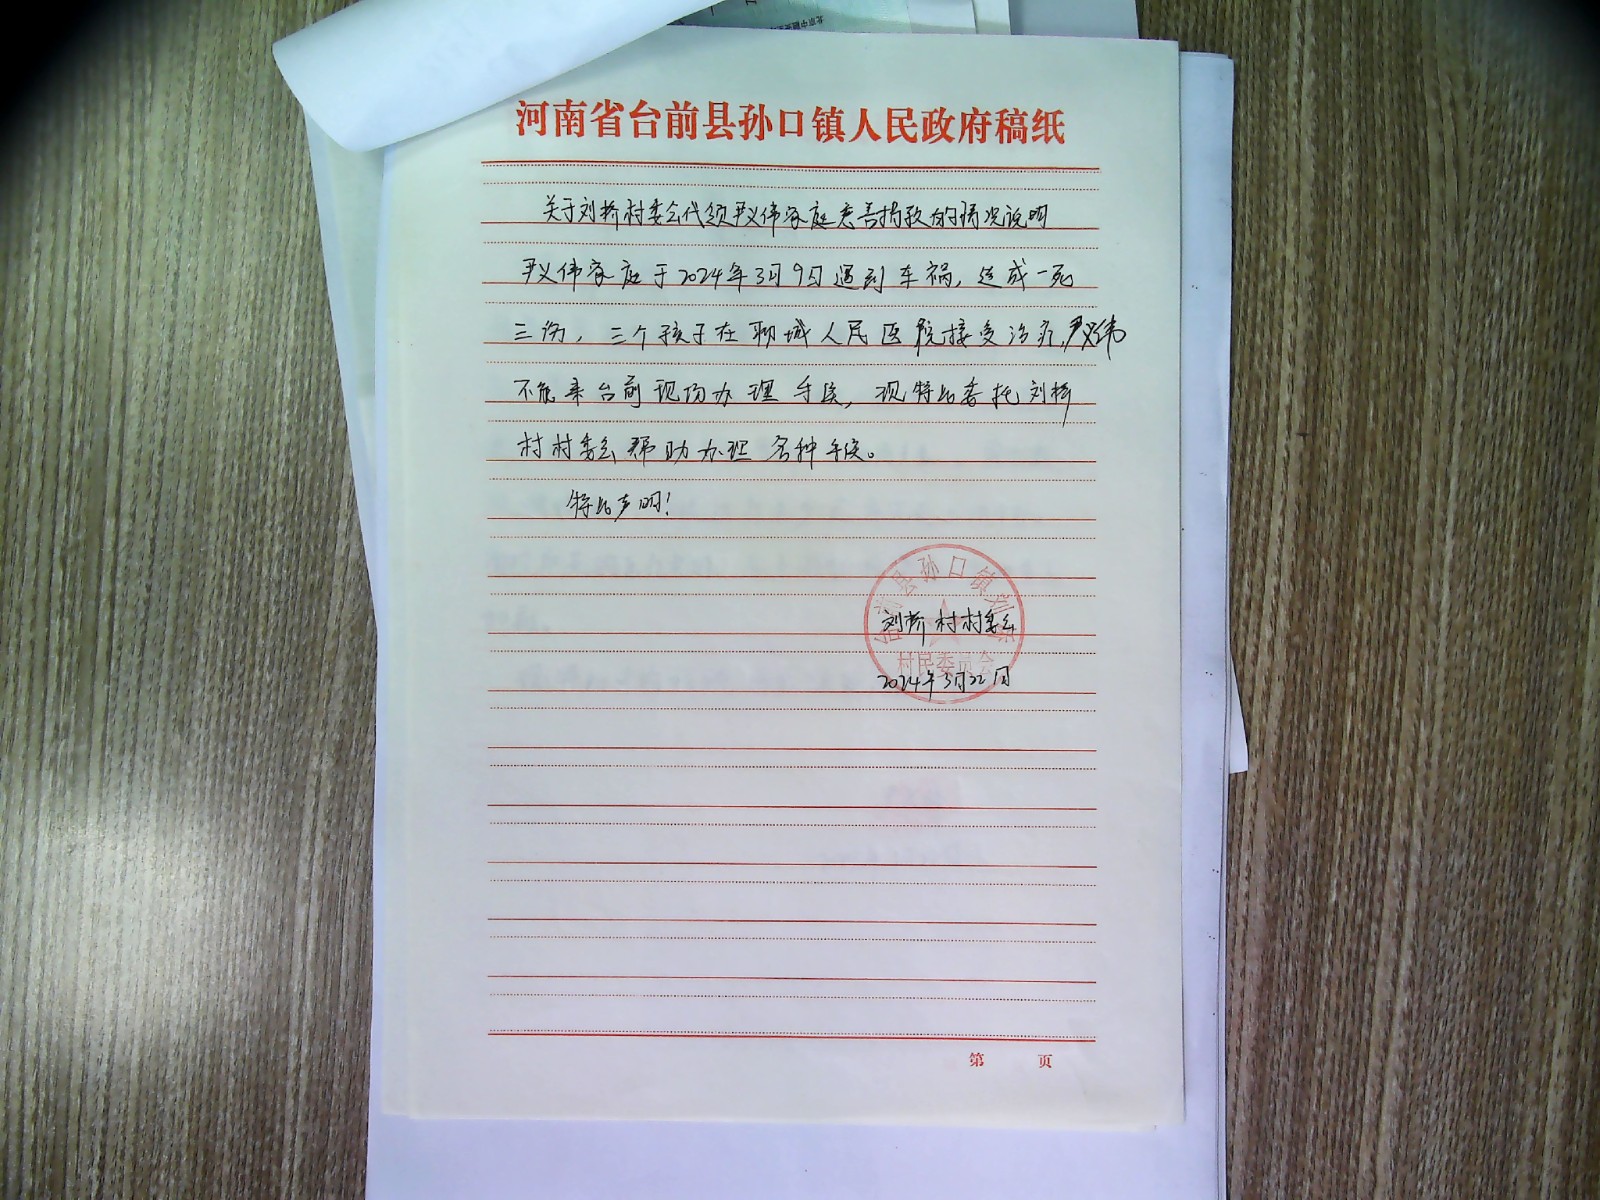 河南省台前县孙口镇人民政府稿纸
关于刘桥村委会代领尹义伟家庭慈善捐款的情况说明
尹义伟家庭于2024年3月9日遇到车祸,造成一死
三伤,三个孩子在聊城人民医院接受治疗,尹义伟
不能来台前现场办理手续,现特此委托刘桥
村村委会帮助办理各种手续。
特此声明!
台前县孙口镇刘桥
刘桥村村委会
村民委员会
2024年3月22日
第 页